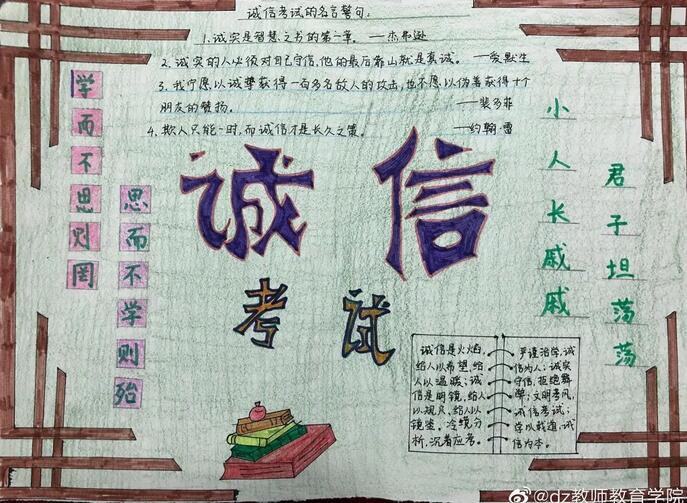 诚信考试的名言警句:
1.诚实是智慧之书的第一章。——杰弗逊
2.诚实的人必须对自己守信,他的最后靠山就是真诚。——爱默生
3.我宁愿以诚挚获得一百名敌人的攻击,也不愿以伪善获得十个
朋友的赞扬。——裴多菲
4.欺人只能一时,而诚信才是长久之策。——约翰·雷
学而不思则罔
思而不学则殆
诚信
考试
君子坦荡荡
小人长戚戚
诚信是火焰,
给人以希望,给
人以温暖;诚
信是明镜,给人
以观贝,给人以
镜鉴。冷镜分
析,沉着应考。
严谨治学,诚
信为人;诚实
守信,拒绝舞
弊;文明考风,
诚信考试;
学以载道,诚
信为本。
@dz教师教育学院